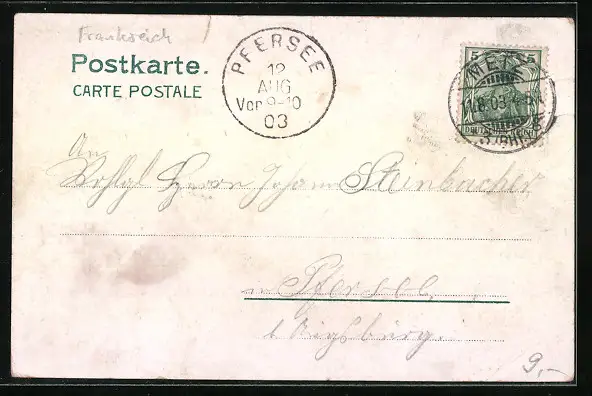 Frankreich
Postkarte.
CARTE POSTALE
PFERSEE
12
AUG
Vor 9-10
03
5 5
METZ
11.8.03
DEUTSCHES REICH
An
Wohlgb Herrn Johann Steinbacher
in Pfersee
b. Augsburg.
9,-